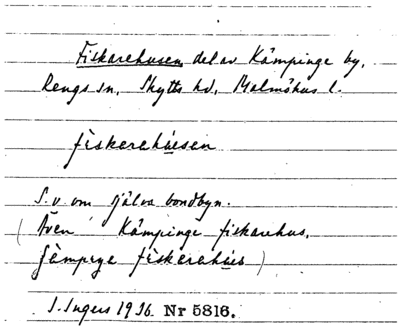 Fiskarehusen, del av Kämpinge by,
Rengs sn, Skytts hd, Malmöhus l.
fiskerahúsen
S.v. om själva bondbyn.
(Även Kämpinge fiskarehus,
fiskerahús)
I. Ingers 1936. Nr 5816.